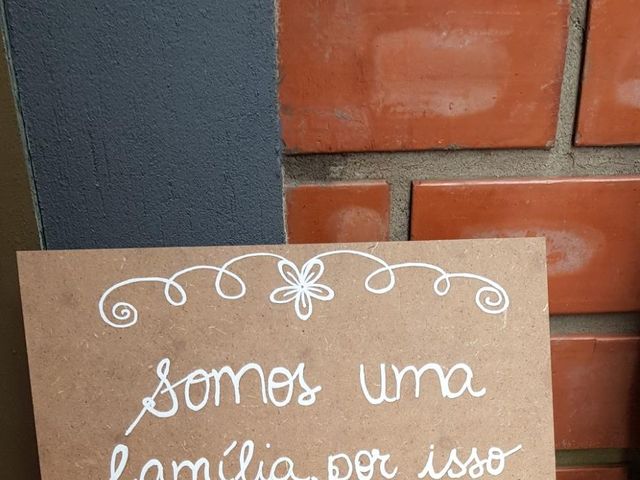 Somos uma
família, por isso